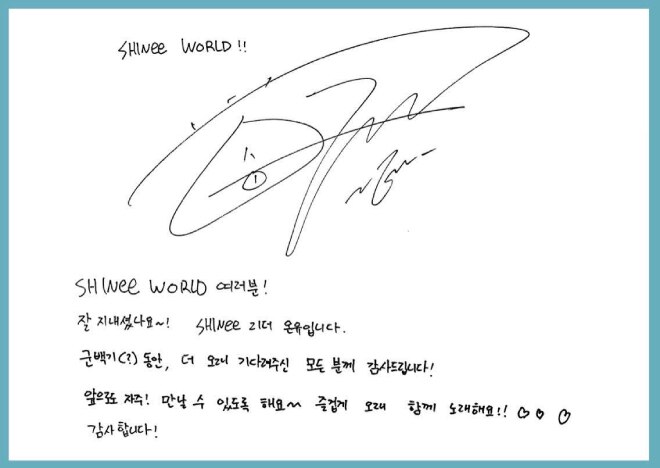 SHINee WORLD!!
SHINee WORLD 여러분!
잘 지내셨나요~! SHINee 리더 온유입니다.
군백기(?) 동안, 더 오래 기다려주신 모든 분께 감사드립니다!
앞으로도 자주! 만날 수 있도록 해요~ 즐겁게 오래 함께 노래해요!! ♡♡♡
감사합니다!